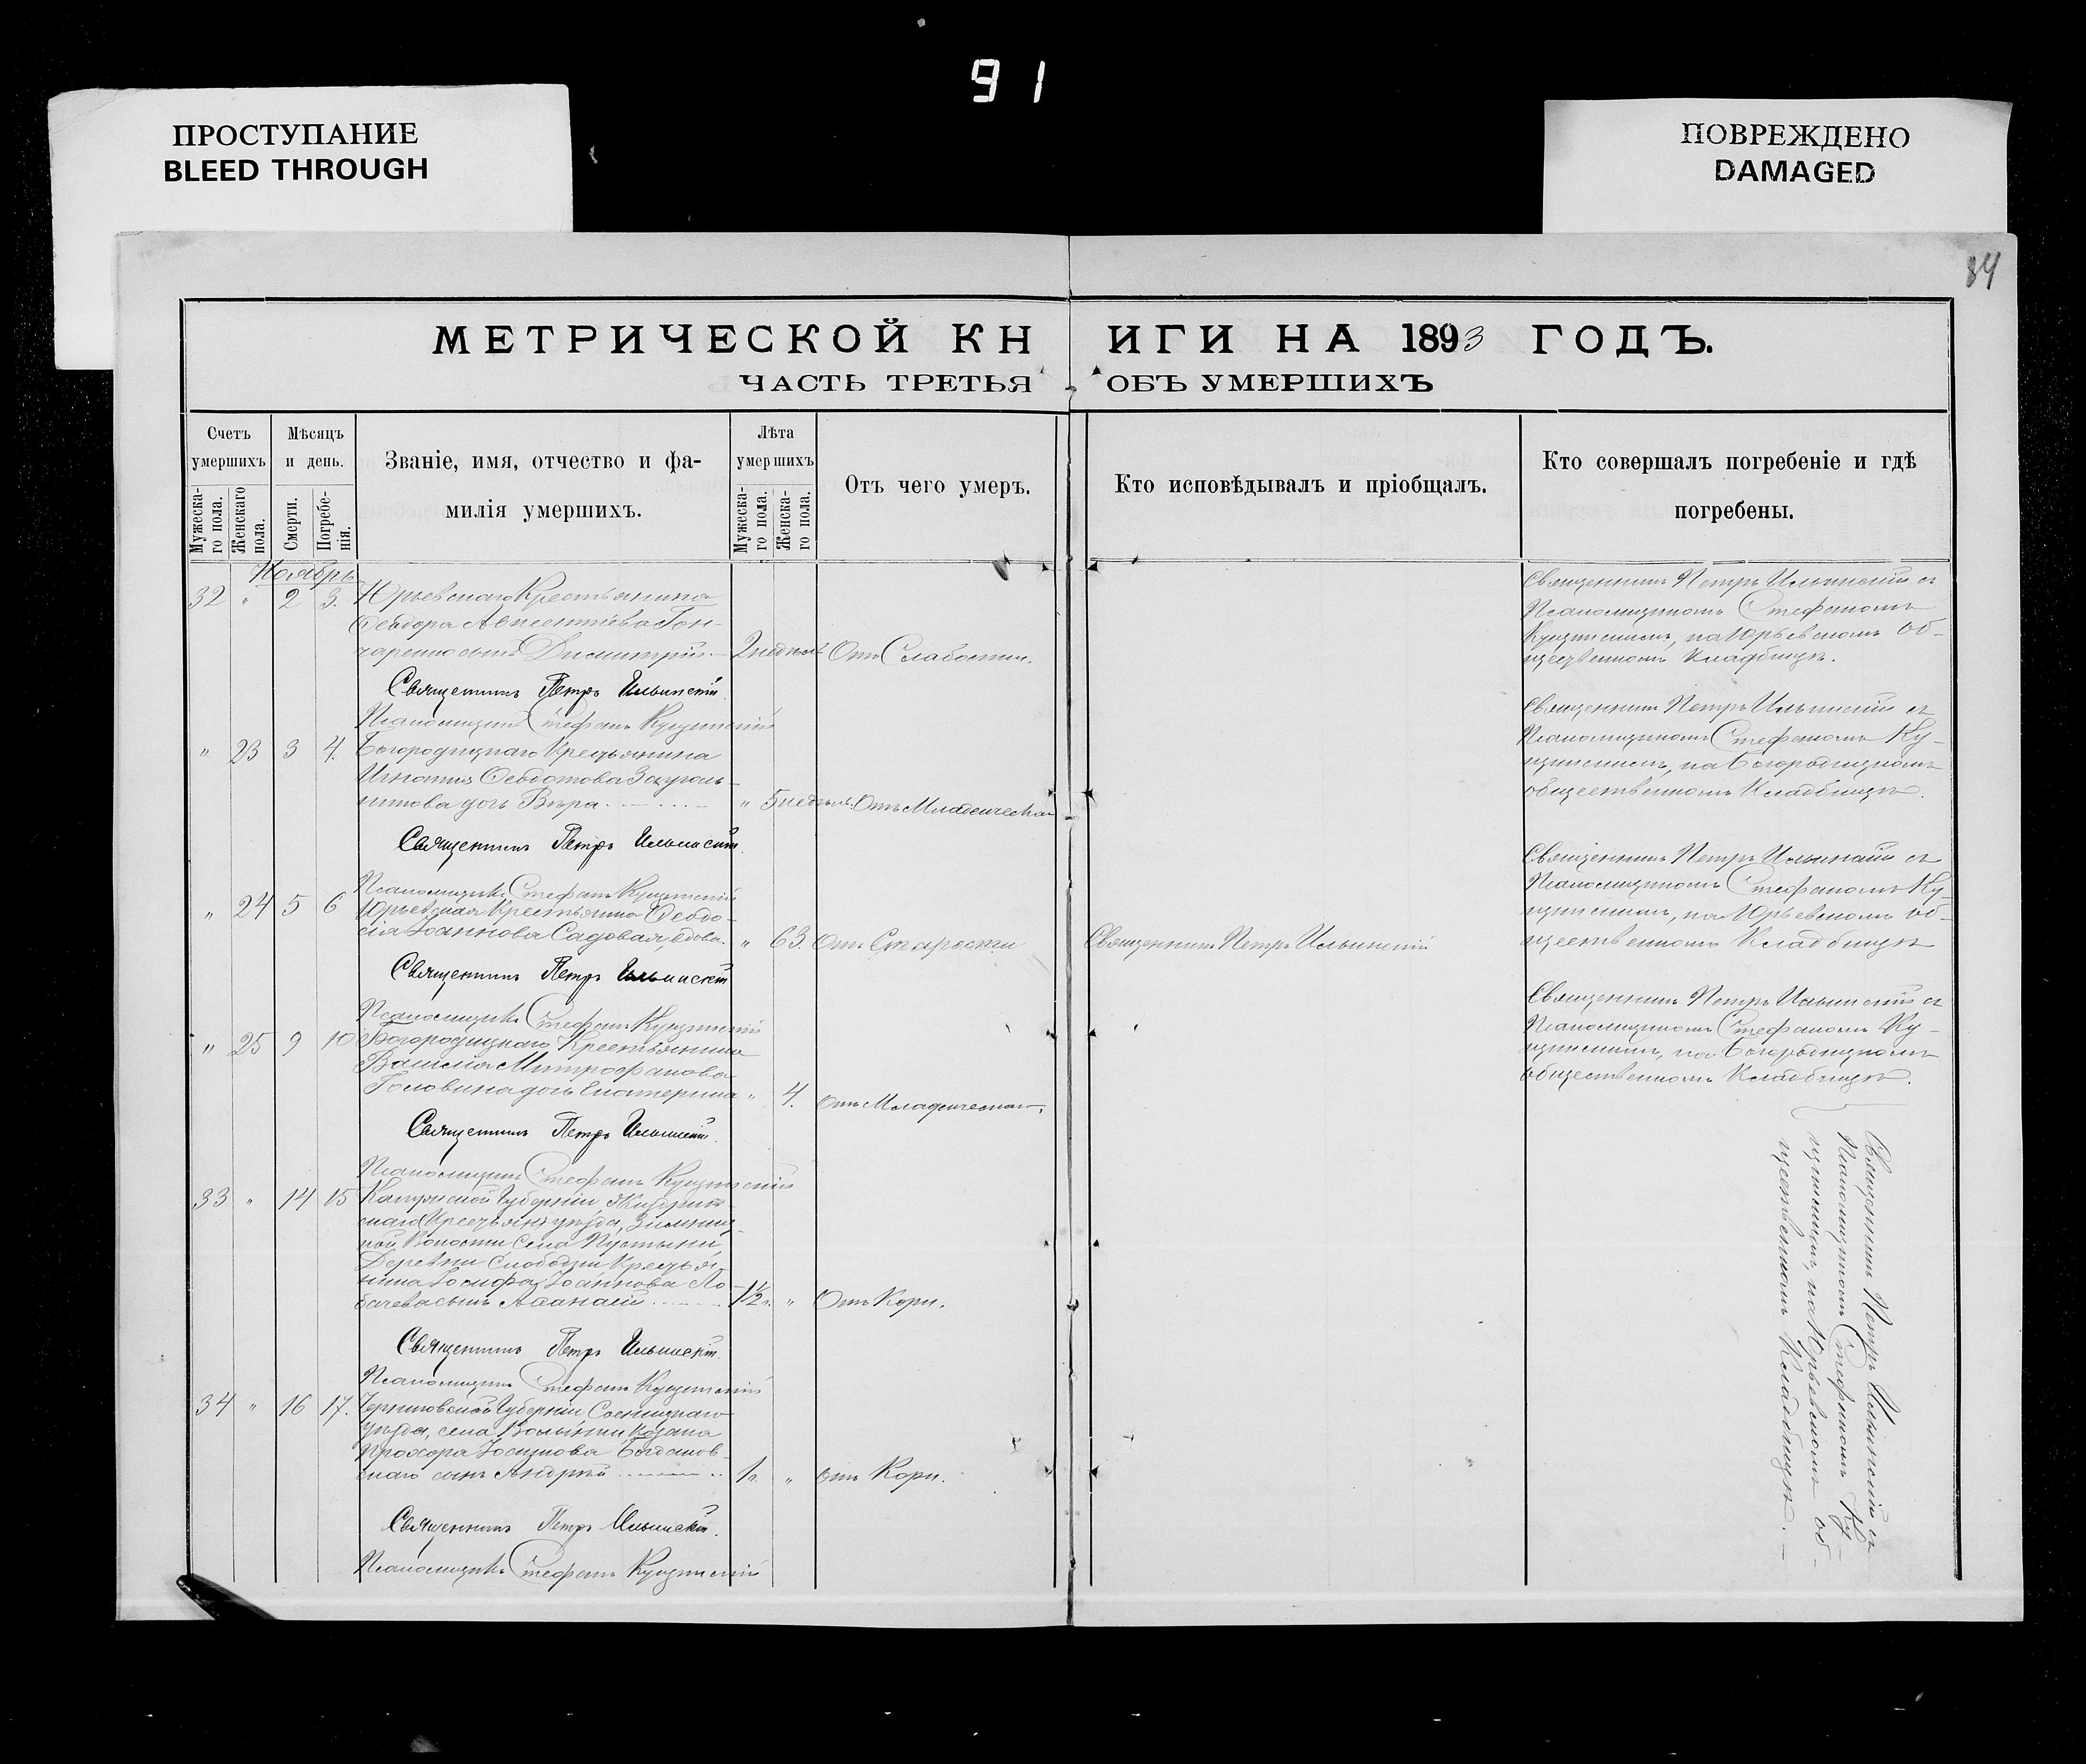 91
ПРОСТУПАНИЕ
BLEED THROUGH
ПОВРЕЖДЕНО
DAMAGED
84
МЕТРИЧЕСКОЙ КНИГИ НА 1893 ГОДЪ.
ЧАСТЬ ТРЕТЬЯ ОБЪ УМЕРШИХЪ
Счетъ умершихъ
Мужеска-го пола.
Женскаго пола.
Мѣсяцъ и день.
Смерти.
Погребе-нія.
Званіе, имя, отчество и фа-
милія умершихъ.
Лѣта умершихъ
Мужеска-го пола.
Женска-го пола.
Отъ чего умеръ.
Кто исповѣдывалъ и пріобщалъ.
Кто совершалъ погребеніе и гдѣ
погребены.
Ноябрь
32 " 2 3. Юрьевскаго Крестьянина
Ѳеодора Авксентіева Гон-
чаренко сынъ Димитрій. 2 недѣль Отъ Слабости.
Священникъ Петръ Ильинскій с
Псаломщикомъ Стефаномъ
на Юрьевскомъ об-
щественномъ Кладбищѣ.
Священникъ Петръ Ильинскій
Псаломщикъ Стефанъ
" 23 3 4. Богородицкаго Крестьянина
Игнатія Ѳеодотова
дочь Вѣра. " 5 недѣль. Отъ Младенческой
Священникъ Петръ Ильинскій с
Псаломщикомъ Стефаномъ
на Богородицкомъ
общественномъ Кладбищѣ.
Священникъ Петръ Ильинскій.
Псаломщикъ Стефанъ
" 24 5 6 Юрьевская Крестьянка Ѳеодо-
сія Іоаннова Садовая, вдова. " 63. Отъ Старости
Священникъ Петръ Ильинскій
Священникъ Петръ Ильинскій с
Псаломщикомъ Стефаномъ
на Юрьевскомъ об-
щественномъ Кладбищѣ
Священникъ Петръ Ильинскій
Псаломщикъ Стефанъ
" 25 9 10 Богородицкаго Крестьянина
Василія Митрофанова
Головина дочь Екатерина " 4. Отъ Младенческой.
Священникъ Петръ Ильинскій с
Псаломщикомъ Стефаномъ
на Богородицкомъ
общественномъ Кладбищѣ.
Священникъ Петръ Ильинскій.
Псаломщикъ Стефанъ
33 " 14 15 Калужской Губерніи, Жиздрин-
скаго (Крестьян) уѣзда,
Волости Села Пустыни,
Деревни Слободки Крестья-
нина Іосифа Іоаннова Ло-
бачева сынъ Аѳанасій 1½ " Отъ Кори.
Священникъ Петръ Ильинскій.
Псаломщикъ Стефанъ
34 " 16 17. Черниговской Губерніи Сосницкаго
уѣзда, села Волынки Козака
Прохора Богданов-
скаго сынъ Андрей 1 " Отъ Кори.
Священникъ Петръ Ильинскій.
Псаломщикъ Стефанъ
Священникъ Петръ Ильинскій с
Псаломщикомъ Стефаномъ
на Юрьевскомъ об-
щественномъ Кладбищѣ.